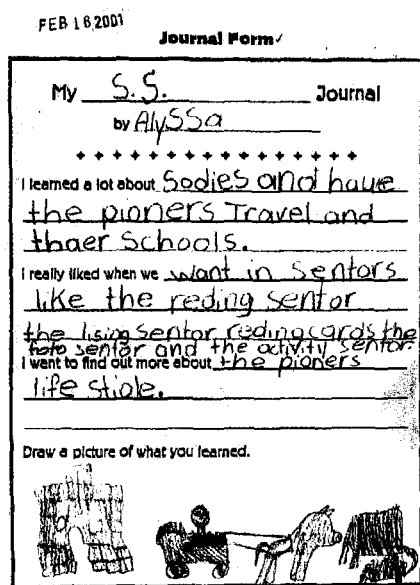 FEB 16 2001
Journal Form
My S.S. Journal
by Alyssa
I learned a lot about Sodies and haue
the pioners Travel and
thaer Schools.
I really liked when we want in Sentors
like the reding sentor
the lising sentor reding cards the
foto sentor and the activity sentor.
I want to find out more about the pioners
life stiale.
Draw a picture of what you learned.